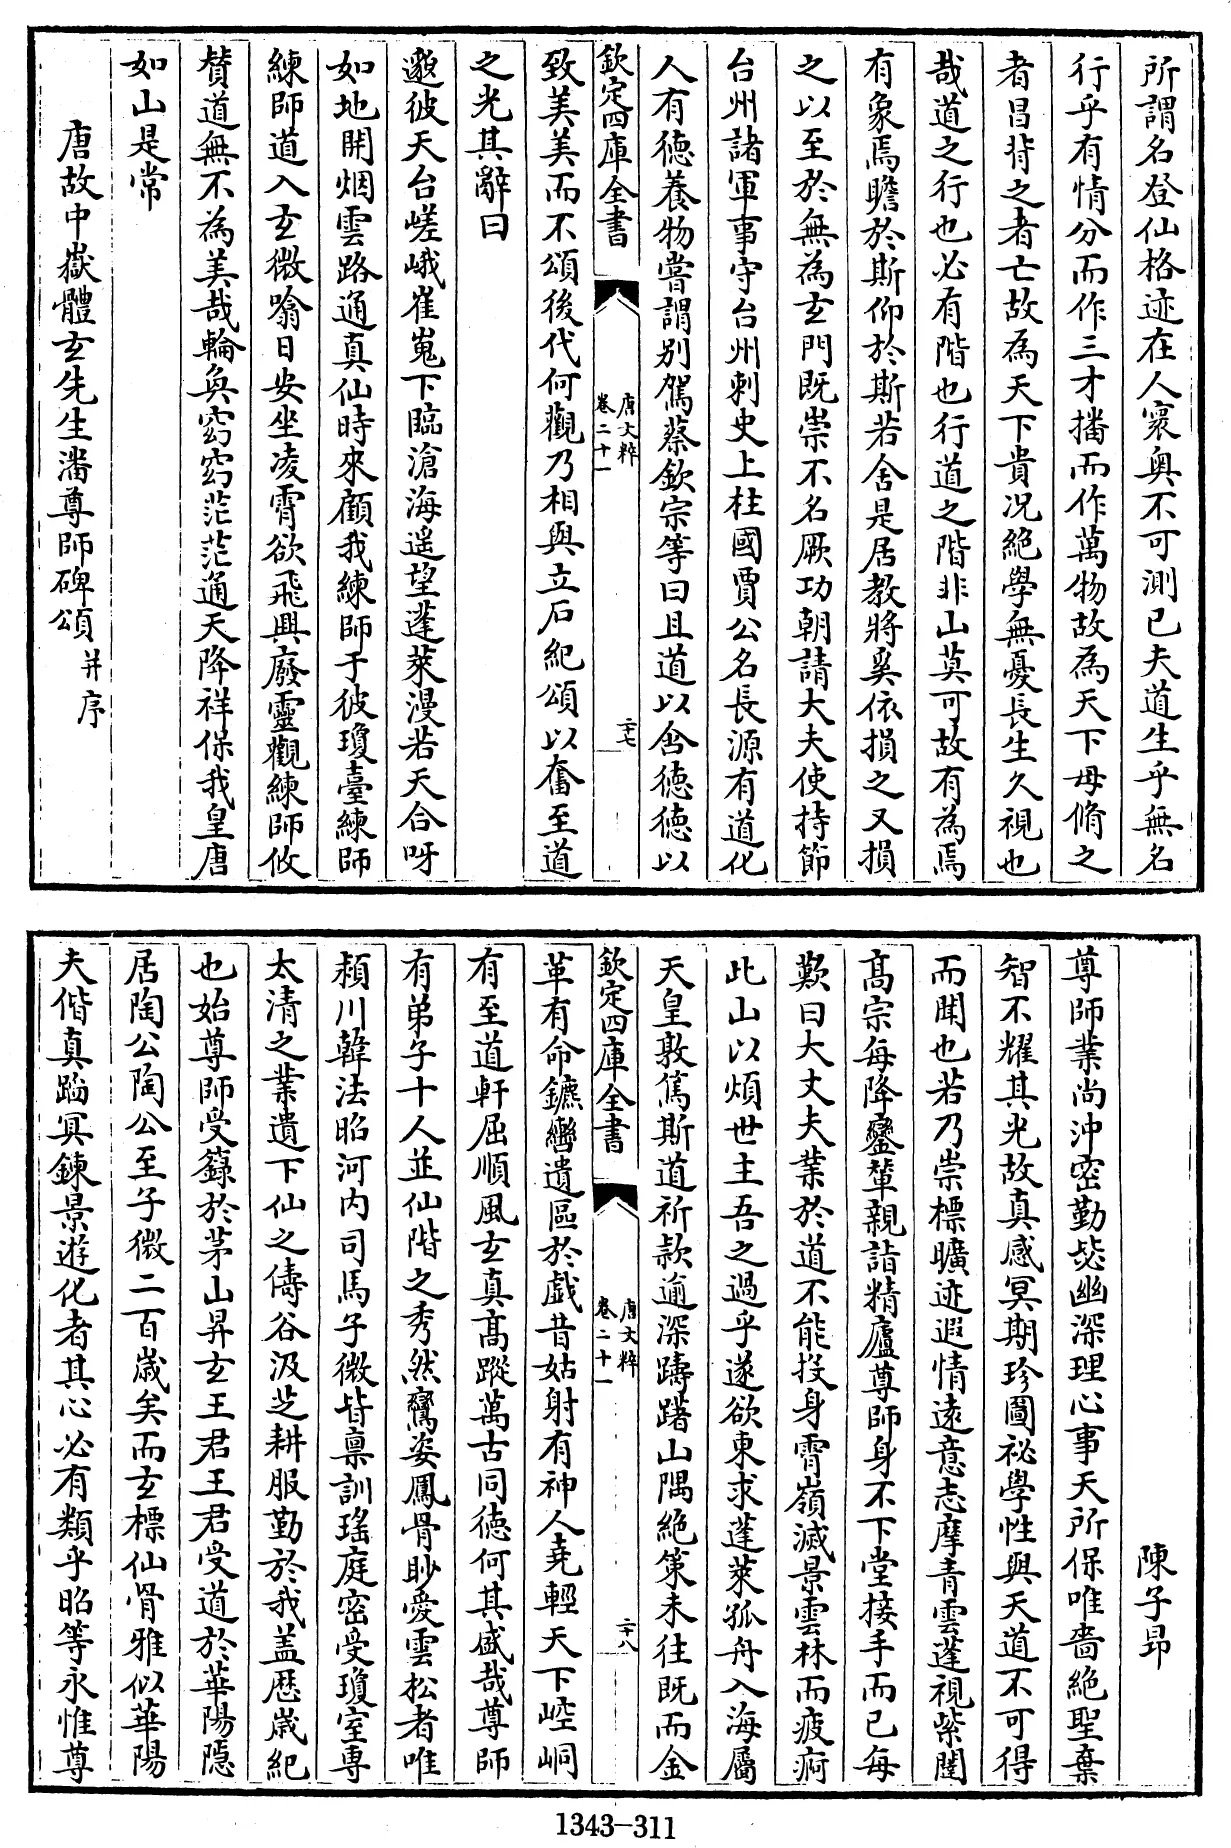 所謂名登仙格迹在人寰奥不可測已夫道生乎無名
行乎有情分而作三才播而作萬物故為天下母脩之
者昌背之者亡故為天下貴况絶學無憂長生久視也
哉道之行也必有階也行道之階非山莫可故有為焉
有象焉瞻於斯仰於斯若舍是居教將奚依損之又損
之以至於無為玄門既崇不名厥功朝請大夫使持節
台州諸軍事守台州刺史上柱國賈公名長源有道化
人有徳養物嘗謂别駕蔡欽宗等曰且道以含徳徳以
欽定四庫全書
唐文粹
卷二十一
二十七
致美美而不頌後代何觀乃相與立石紀頌以奮至道
之光其辭曰
邈彼天台嵯峨崔嵬下臨滄海遥望蓬萊漫若天合呀
如地開烟雲路通真仙時來顧我練師于彼瓊臺練師
練師道入玄微噏日安坐凌霄欲飛興廢靈觀練師攸
賛道無不為美哉輪奐窈窈茫茫通天降祥保我皇唐
如山是常
唐故中嶽體玄先生潘尊師碑頌并序
陳子昂
尊師業尚沖密勤毖幽深理心事天所保唯嗇絶聖棄
智不耀其光故真感冥期珍圖祕學性與天道不可得
而聞也若乃崇標曠迹遐情遠意志摩青雲蓬視紫闥
髙宗每降鑾輦親詣精廬尊師身不下堂接手而已每
歎曰大丈夫業於道不能投身霄嶺滅景雲林而疲痾
此山以煩世主吾之過乎遂欲東求蓬萊孤舟入海屬
天皇敦篤斯道祈款逾深躊躇山隅絶策未往既而金
欽定四庫全書
唐文粹
卷二十一
二十八
革有命鑣轡遺區於戲昔姑射有神人堯輕天下崆峒
有至道軒屈順風玄真髙蹤萬古同徳何其盛哉尊師
有弟子十人並仙階之秀然鸞姿鳳骨眇愛雲松者唯
潁川韓法昭河内司馬子微皆禀訓瑤庭密受瓊室專
太清之業遺下仙之儔谷汲芝耕服勤於我蓋厯歲紀
也始尊師受籙於茅山昇玄王君王君受道於華陽隠
居陶公陶公至子微二百歲矣而玄標仙骨雅似華陽
夫偕真踰冥鍊景遊化者其心必有類乎昭等永惟尊
1343-311